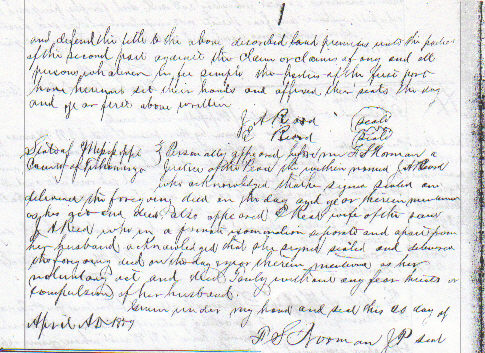 1
and defend the title to the above described land premises unto the parties
of the second part against the claim or claims of any and all
persons whatever in fee simple the parties of the first part
have hereunto set their hands and affixed their seals the day
and year first above written
J A Reod seal
E Reod seal
State of Mississippi } Personally appeared before me F S Norman a
County of Tishomingo Justice of the Peace the within named J A Reod
who acknowledged that he signed sealed and
delivered the foregoing deed on the day and year therein mentioned
as his act and deed also appeared E Reod wife of the said
J A Reed who in a private examination separate and apart from
her husband acknowledged that she signed sealed and delivered
the foregoing deed on the day & year therein mentioned as her
voluntary act and deed freely without any fear threats or
compulsion of her husband.
Given under my hand and seal this 20 day of
April AD
F S Norman JP seal